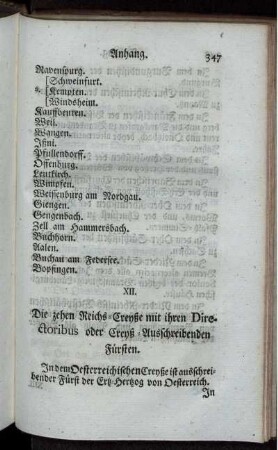 Anhang. 347
Ravenspurg.
Schweinfurt.
Kempten.
Windsheim.
Kauffbeuren.
Weil.
Wangen.
Ißni.
Pfullendorff.
Offenburg.
Leutkirch.
Wimpfen.
Weissenburg am Nordgau.
Giengen.
Gengenbach.
Zell am Hammersbach.
Buchhorn.
Aalen.
Buchau am Federsee.
Bopfingen.
XII.
Die zehen Reichs-Creyße mit ihren Dire-
ctoribus oder Creyß-Ausschreibenden
Fürsten.
In dem Oesterreichischen Creyße ist ausschrei-
bender Fürst der Ertz-Hertzog von Oesterreich.
In